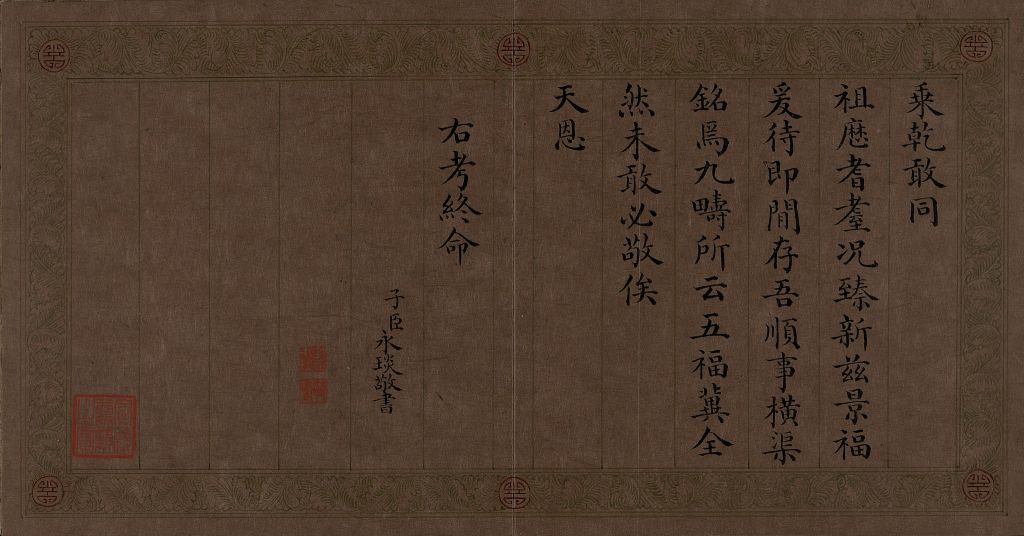 乘乾敢同
祖歷耆耋況臻新茲景福
爰待即閒存吾順事橫渠
銘爲九疇所云五福冀全
然未敢必敬俟
天恩
右考終命
子臣永琰敬書